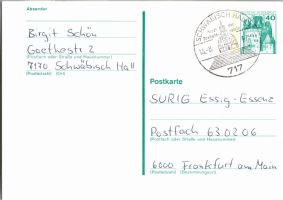 Absender
Birgit Schön
Goethestr 2
(Postfach oder Straße und Hausnummer)
7170 Schwäbisch Hall
(Postleitzahl) (Ort)
SCHWÄBISCH HALL
717
40
Postkarte
SURIG Essig-Essenz
Postfach 630206
(Postfach oder Straße und Hausnummer)
6000 Frankfurt am Main
(Postleitzahl) (Bestimmungsort)